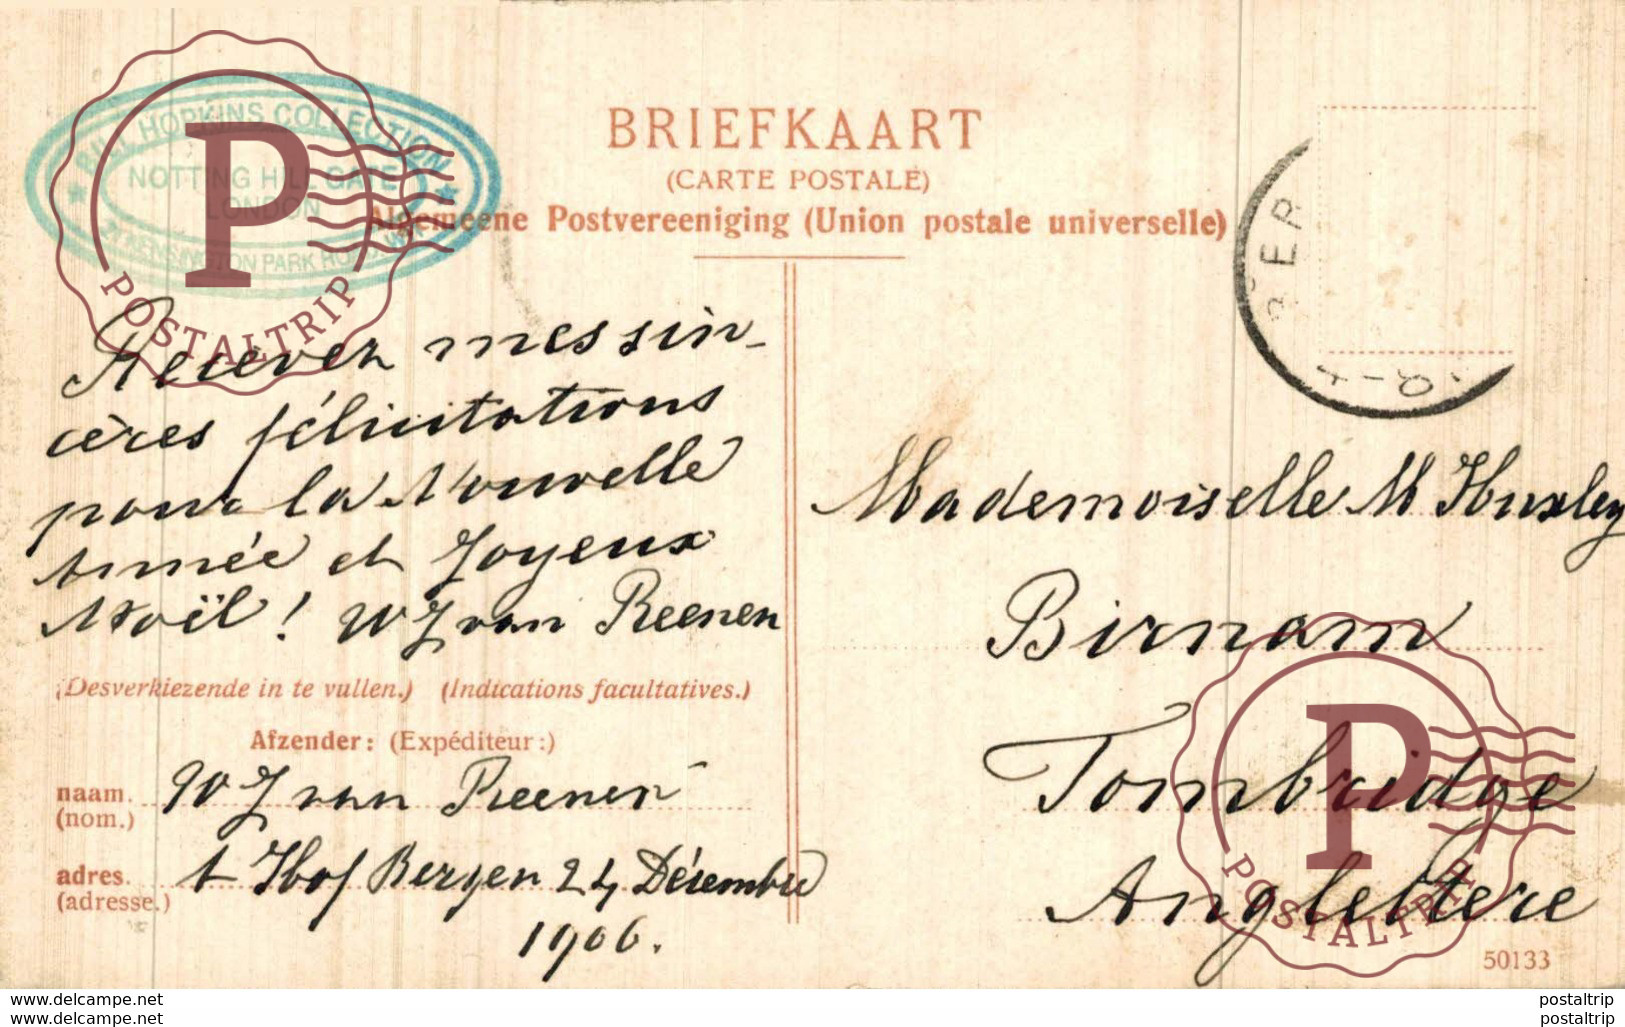 BILL HOPKINS COLLECTION
NOTTING HILL GATE
LONDON
KENSINGTON PARK ROAD
P
POSTALTRIP
BRIEFKAART
(CARTE POSTALE)
Algemeene Postvereeniging (Union postale universelle)
BER
Recevez mes sin-
cères félicitations
pour la Nouvelle
Année et Joyeux
Noël! W J van Reenen
(Desverkiezende in te vullen.) (Indications facultatives.)
Afzender: (Expéditeur:)
naam. W J van Reenen
(nom.)
adres. t Hof Bergen 24 Décembre
(adresse.)
1906.
Mademoiselle M Huxley
Birnam
Tombridge
Angleterre
P
POSTALTRIP
50133
www.delcampe.net
www.delcampe.net
postaltrip
postaltrip